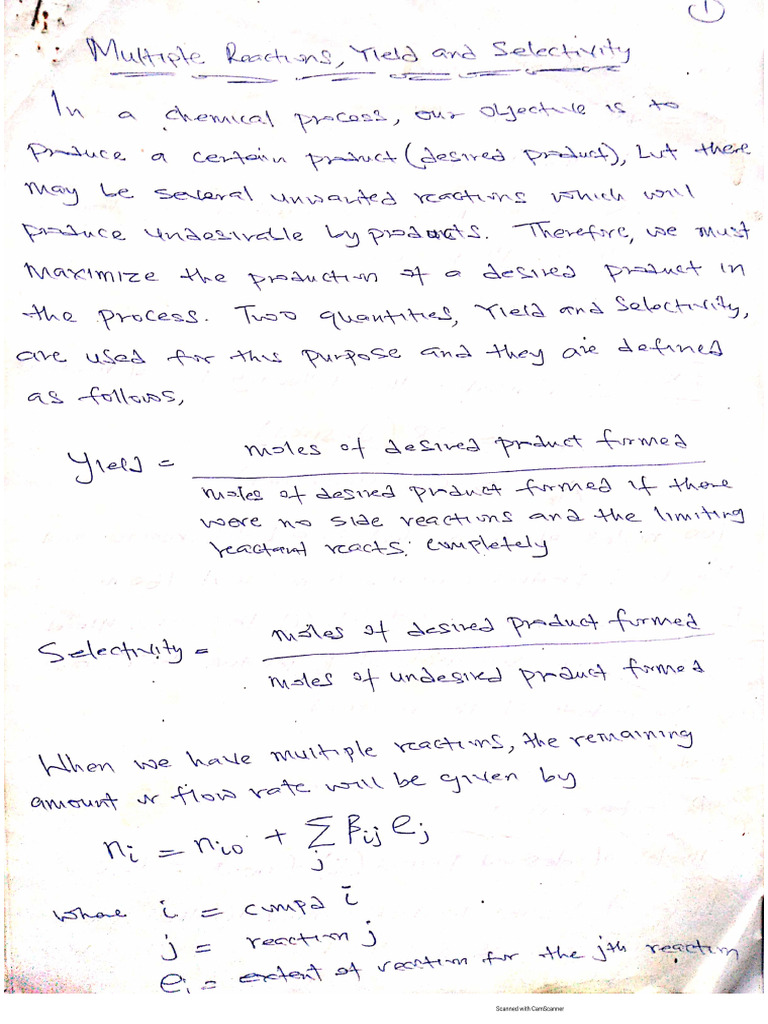 1
Multiple Reactions, Yield and Selectivity
In a chemical process, our objective is to
produce a certain product (desired product), but there
may be several unwanted reactions which will
produce undesirable by products. Therefore, we must
maximize the production of a desired product in
the process. Two quantities, Yield and Selectivity,
are used for this purpose and they are defined
as follows,
Yield = moles of desired product formed
moles of desired product formed if there
were no side reactions and the limiting
reactant reacts completely
Selectivity = moles of desired product formed
moles of undesired product formed
When we have multiple reactions, the remaining
amount or flow rate will be given by
nᵢ = nᵢ₀ + Σⱼ βᵢⱼ eⱼ
where i = compd i
j = reaction j
eⱼ = extent of reaction for the jth reaction
Scanned with CamScanner